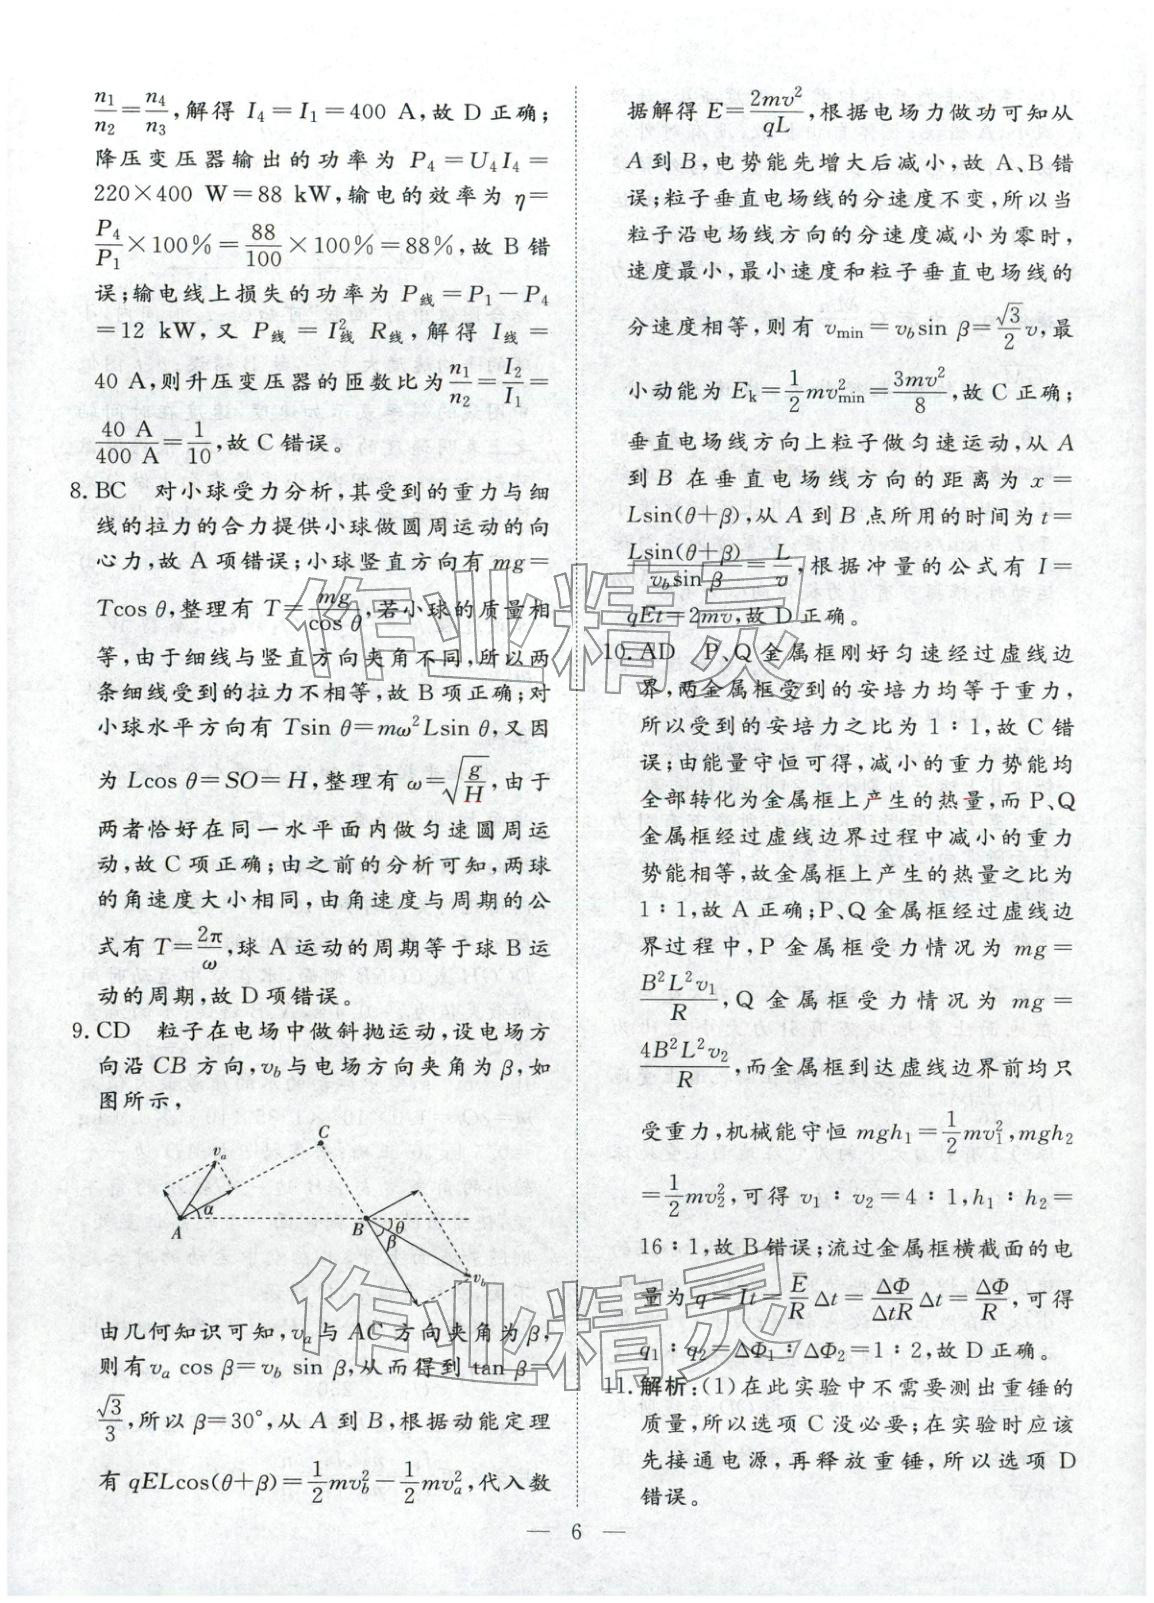 n₁/n₂=n₄/n₃,解得 I₄=I₁=400 A,故 D 正确;
降压变压器输出的功率为 P₄=U₄I₄=
220×400 W=88 kW,输电的效率为 η=
P₄/P₁×100%=88/100×100%=88%,故 B 错
误;输电线上损失的功率为 P线=P₁-P₄
=12 kW,又 P线=I²线 R线,解得 I线=
40 A,则升压变压器的匝数比为n₁/n₂=I₂/I₁=
40 A/400 A=1/10,故 C 错误。
8. BC 对小球受力分析,其受到的重力与细
线的拉力的合力提供小球做圆周运动的向
心力,故 A 项错误;小球竖直方向有 mg=
Tcos θ,整理有 T=mg/cos θ,若小球的质量相
等,由于细线与竖直方向夹角不同,所以两
条细线受到的拉力不相等,故 B 项正确;对
小球水平方向有 Tsin θ=mω²Lsin θ,又因
为 Lcos θ=SO=H,整理有 ω=√(g/H),由于
两者恰好在同一水平面内做匀速圆周运
动,故 C 项正确;由之前的分析可知,两球
的角速度大小相同,由角速度与周期的公
式有 T=2π/ω,球 A 运动的周期等于球 B 运
动的周期,故 D 项错误。
9. CD 粒子在电场中做斜抛运动,设电场方
向沿 CB 方向,v_b与电场方向夹角为 β,如
图所示,
C
v_a
α
A
B
θ
β
v_b
由几何知识可知,v_a与 AC 方向夹角为 β,
则有v_a cos β=v_b sin β,从而得到 tan β=
√3/3,所以 β=30°,从 A 到 B,根据动能定理
有 qELcos(θ+β)=1/2mv_b²-1/2mv_a²,代入数
据解得 E=2mv²/qL,根据电场力做功可知从
A 到 B,电势能先增大后减小,故 A、B 错
误;粒子垂直电场线的分速度不变,所以当
粒子沿电场线方向的分速度减小为零时,
速度最小,最小速度和粒子垂直电场线的
分速度相等,则有 v_min=v_b sin β=√3/2 v,最
小动能为 E_k=1/2mv²_min=3mv²/8,故 C 正确;
垂直电场线方向上粒子做匀速运动,从 A
到 B 在垂直电场线方向的距离为 x=
Lsin(θ+β),从 A 到 B 点所用的时间为 t=
Lsin(θ+β)/v_b sin β=L/v,根据冲量的公式有 I=
qEt=2mv,故 D 正确。
10. AD P、Q 金属框刚好匀速经过虚线边
界,两金属框受到的安培力均等于重力,
所以受到的安培力之比为 1∶1,故 C 错
误;由能量守恒可得,减小的重力势能均
全部转化为金属框上产生的热量,而 P、Q
金属框经过虚线边界过程中减小的重力
势能相等,故金属框上产生的热量之比为
1∶1,故 A 正确;P、Q 金属框经过虚线边
界过程中,P 金属框受力情况为 mg=
B²L²v₁/R,Q 金属框受力情况为 mg=
4B²L²v₂/R,而金属框到达虚线边界前均只
受重力,机械能守恒 mgh₁=1/2mv₁²,mgh₂
=1/2mv₂²,可得 v₁∶v₂=4∶1,h₁∶h₂=
16∶1,故 B 错误;流过金属框横截面的电
量为 q=I̅t=E̅/RΔt=ΔΦ/ΔtRΔt=ΔΦ/R,可得
q₁∶q₂=ΔΦ₁∶ΔΦ₂=1∶2,故 D 正确。
11. 解析:(1)在此实验中不需要测出重锤的
质量,所以选项 C 没必要;在实验时应该
先接通电源,再释放重锤,所以选项 D
错误。
— 6 —
作业精灵
作业精灵